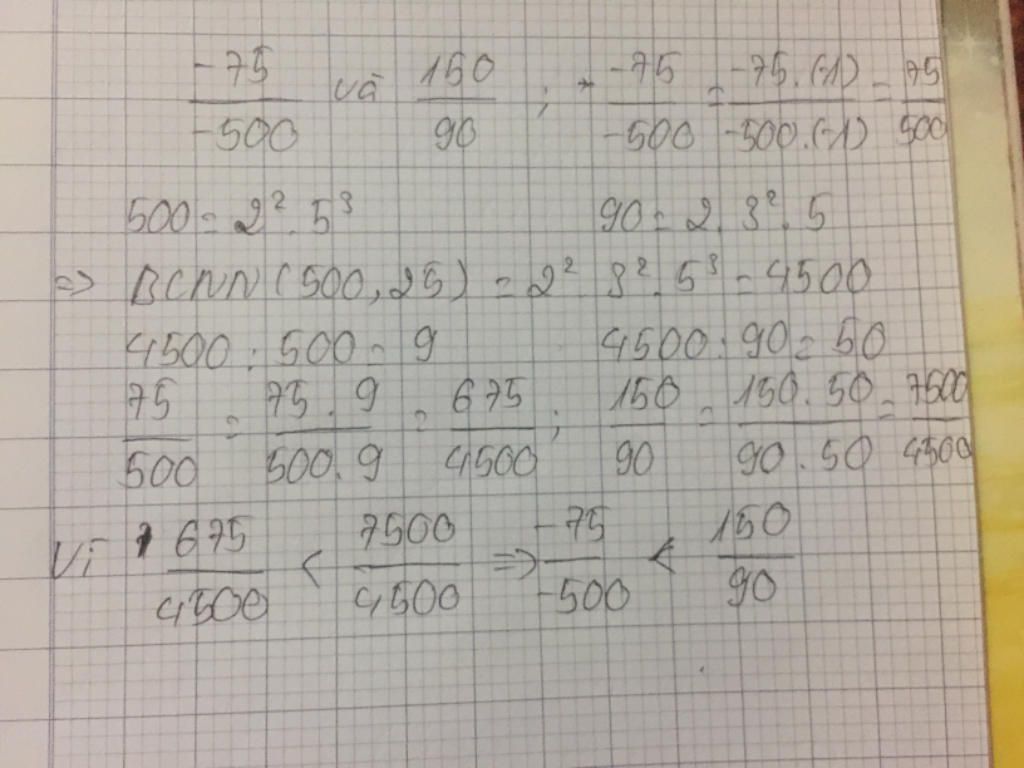 -75/-500 và 150/90 ; -75/-500 = -75.(-1)/-500.(-1) = 75/500
500 = 2² . 5³ 90 = 2 . 3² . 5
=> BCNN (500, 25) = 2² . 3² . 5³ = 4500
4500 : 500 = 9 4500 : 90 = 50
75/500 = 75 . 9/500 . 9 = 675/4500 ; 150/90 = 150 . 50/90 . 50 = 7500/4500
Vì 675/4500 < 7500/4500 => -75/-500 < 150/90